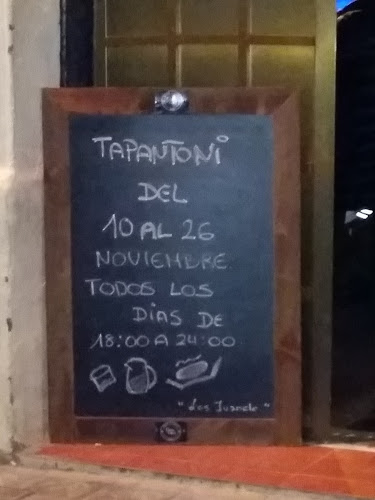 TAPANTONI
DEL
10 AL 26
NOVIEMBRE
TODOS LOS
DÍAS DE
18:00 A 24:00